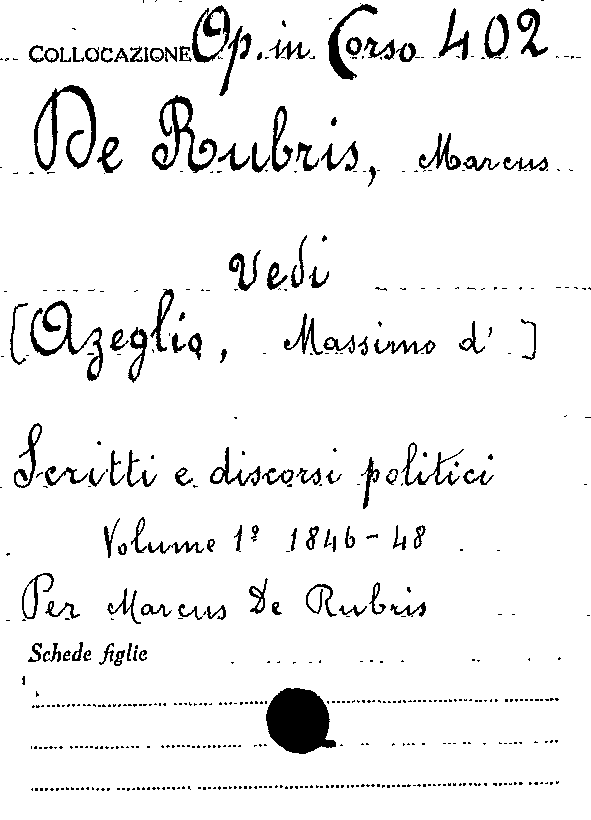 COLLOCAZIONE Op. in Corso 402
De Rubris, Marcus
Vedi
[Azeglio, Massimo d']
Scritti e discorsi politici
Volume 1º 1846-48
Per Marcus De Rubris
Schede figlie